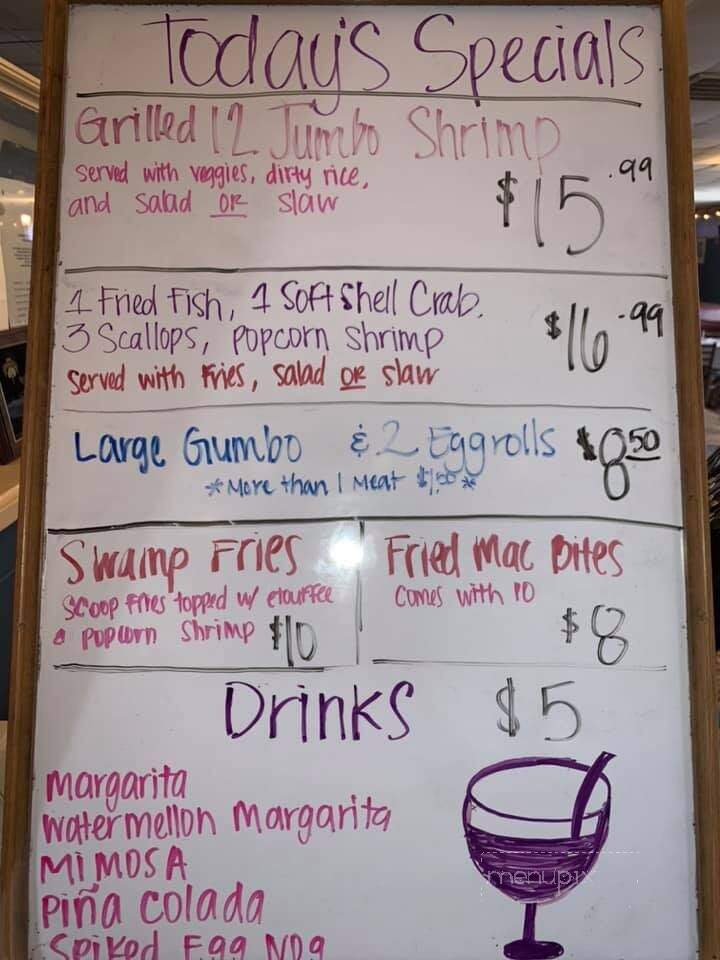 Today's Specials
Grilled 12 Jumbo Shrimp
served with veggies, dirty rice,
and salad OR slaw
$15.99
1 Fried Fish, 1 Soft Shell Crab.
3 Scallops, popcorn shrimp
served with Fries, salad OR slaw
$16.99
Large Gumbo & 2 Eggrolls $8.50
*More than 1 Meat $1.50*
Swamp Fries
scoop fries topped w/ etouffee
& popcorn shrimp $10
Fried Mac Bites
comes with 10
$8
Drinks $5
margarita
watermellon margarita
MIMOSA
piña colada
Spiked Egg Nog
menupix